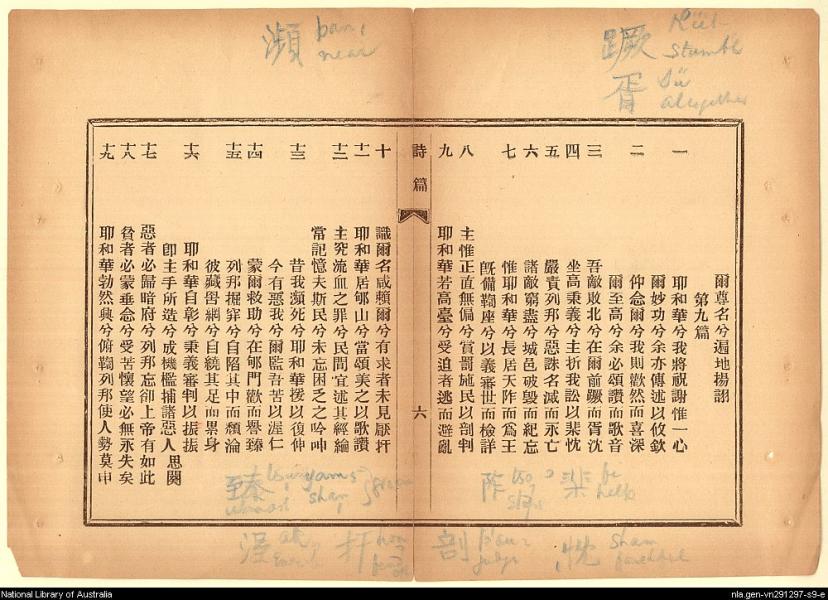 蹶 Küeh
stumble
胥 Sü
altogether
瀕 pan,
near
爾尊名兮遍地揚詡
第九篇
一 耶和華兮我將祝謝惟一心
爾妙功兮余亦傳述以攸欽
二 仰念爾兮我則歡然而喜深
爾至高兮余必頌讚而歌音
三 吾敵敗北兮在爾前蹶而胥沈
四 坐高秉義兮主折我訟以棐忱
五 嚴責列邦兮惡誅名滅而永亡
六 諸敵窮盡兮城邑破毀而紀忘
七 惟耶和華兮長居天阼而為王
既備鞫座兮以義審世而檢詳
八 主惟正直無偏兮賞罰施民以剖判
九 耶和華若高臺兮受迫者逃而避亂
詩篇
六
十 識爾名咸賴爾兮有求者未見厭扞
十一 耶和華居郇山兮當頌美之以歌讚
十二 主究流血之罪兮民間宜述其經綸
當記憶夫斯民兮未忘困乏之吟呻
十三 昔我瀕死兮耶和華援以復伸
今有惡我兮爾監吾苦以渥仁
十四 蒙爾救助兮在郇門歡而譽臻
十五 列邦掘穽兮自陷其中而類淪
彼藏罟網兮自繞其足而累身
十六 耶和華自彰兮秉義審判以振振
即主手所造兮成機檻捕諸惡人 思闋
十七 惡者必歸暗府兮列邦忘卻上帝有如此
十八 貧者必蒙垂念兮受苦懷望必無永失矣
十九 耶和華勃然興兮俯鞫列邦使人勢莫申
棐
help
阼
臻
忱 Sham
剖
judge
扞
渥
National Library of Australia
nla.gen-vn291297-s9-e